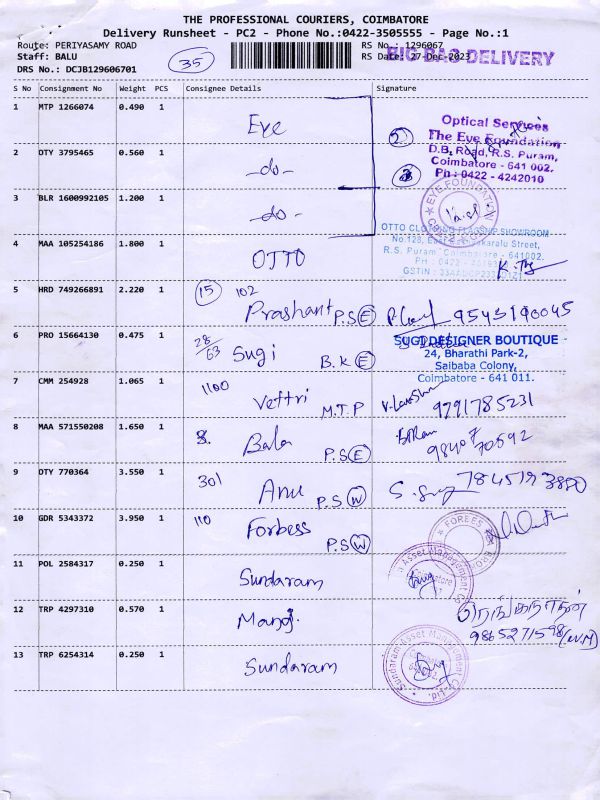 THE PROFESSIONAL COURIERS, COIMBATORE
Delivery Runsheet - PC2 - Phone No.:0422-3505555 - Page No.:1
Route: PERIYASAMY ROAD
Staff: BALU
DRS No.: DCJB129606701
35
RS No.: 1296067
RS Date: 27-Dec-2023
BIG BAG DELIVERY
S No Consignment No Weight PCS Consignee Details Signature
1 MTP 1266074 0.490 1 Eye
2 DTY 3795465 0.560 1 -do-
Optical Services
The Eye Foundation
D.B. Road, R.S. Puram,
Coimbatore - 641 002.
Ph : 0422 - 4242010
3 BLR 1600992105 1.200 1 -do-
EYE FOUNDATION
4 MAA 105254186 1.800 1 OTTO
OTTO CLOTHING FLAGSHIP SHOWROOM
R.S. Puram, Coimbatore - 641002.
5 HRD 749266891 2.220 1 15 102 Prashant P.S E 9543190045
6 PRO 15664130 0.475 1 28/63 Sugi B.K E
SUGI DESIGNER BOUTIQUE
24, Bharathi Park-2,
Saibaba Colony,
Coimbatore - 641 011.
7 CMM 254928 1.065 1 1100 Vettri M.T.P 9791785231
8 MAA 571550208 1.650 1 8. Bala P.S E
9 DTY 770364 3.550 1 301 Anu P.S W
10 GDR 5343372 3.950 1 110 Forbess P.S W
11 POL 2584317 0.250 1 Sundaram
Asset Management
12 TRP 4297310 0.570 1 ரெங்கநாதன்
9865271598
13 TRP 6254314 0.250 1 Sundaram
Sundaram Asset Management Co. Ltd.